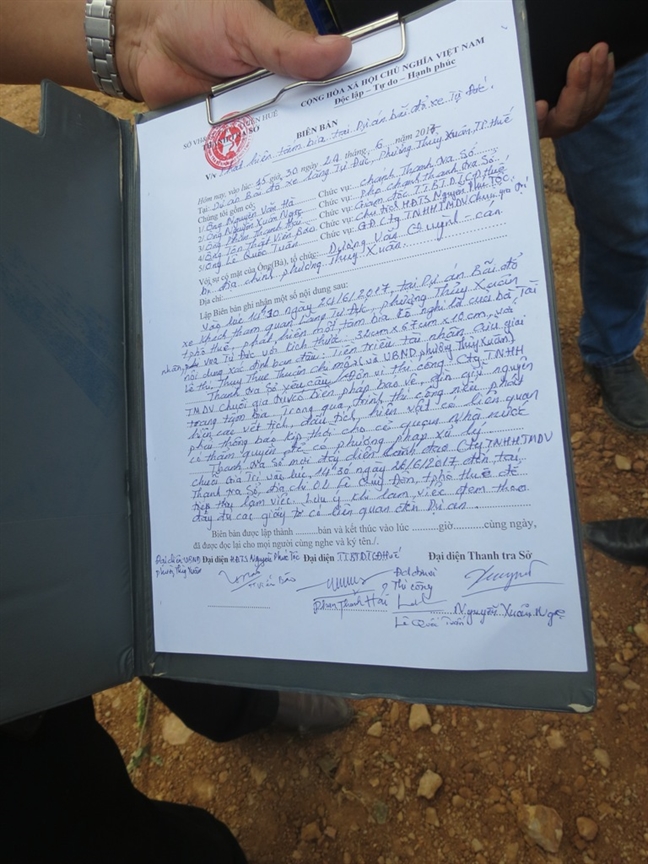 CỘNG HÒA XÃ HỘI CHỦ NGHĨA VIỆT NAM
Độc lập – Tự do – Hạnh phúc
BIÊN BẢN
V/v phát hiện tấm bia tại Dự án bãi đỗ xe Tự Đức
Hôm nay, vào lúc 15 giờ, 30 24 tháng 6 năm 2017
Tại Dự án Bãi đỗ xe lăng Tự Đức, phường Thủy Xuân, TP Huế
Chúng tôi gồm có:
1/Ông Nguyễn Văn Hà Chức vụ: Chánh Thanh tra Sở
2/Ông Nguyễn Xuân Ngọc Chức vụ: Phó Chánh thanh tra Sở
3/Ông Phan Thanh Hải Chức vụ: Giám đốc TTBTDTCĐ Huế
4/Ông Tôn Thất Viễn Bào Chức vụ: Chủ tịch HĐTS Nguyễn Phúc Tộc
5/Ông Lê Quốc Tuấn Chức vụ: GĐ Cty TNHH TMDV Chuỗi giá trị
Với sự có mặt của Ông(Bà), tổ chức: Dương Văn Quỳnh - cán
bộ Địa chính phường Thủy Xuân
Địa chỉ:
Lập Biên bản ghi nhận một số nội dung sau:
Vào lúc 10 24/6/2017, tại Dự án Bãi đỗ
xe khách tham quan lăng Tự Đức, phường Thủy Xuân
tphố Huế, phát hiện một tấm bia đề nghi là của bà Tài
nhân, vợ vua Tự Đức với kích thước: 32cm x 67cm x 10cm, với
nội dung xác định ban đầu: Tiền triều tài nhân Cửu giai
Lê thị, Thụy Thục Thuận chi mộ và UBND phường Thủy Xuân)
Thanh tra Sở yêu cầu Đơn vị thi công Cty TNHH
TMDV Chuỗi giá trị có biện pháp bảo vệ, gìn giữ nguyên
trạng tấm bia. Trong quá trình thi công nếu phát
hiện các vết tích, dấu tích, hiện vật có liên quan
phải thông báo kịp thời cho cơ quan Nhà nước
có thẩm quyền để có phương pháp xử lý.
Thanh tra Sở mời đại diện lãnh đạo Cty TNHH TMDV
chuỗi Giá Trị vào lúc 14h30 ngày 26/6/2017 đến tại
Thanh tra Sở, địa chỉ 01 Lê Quý Đôn, tphố Huế để
tiếp tục làm việc. Lưu ý khi làm việc đem theo
đầy đủ các giấy tờ có liên quan đến Dự án
Biên bản được lập thành ..........bản và kết thúc vào lúc ..........giờ..........cùng ngày,
đã được đọc lại cho mọi người cùng nghe và ký tên./.
Đại diện UBND phường Thủy Xuân
Đại diện HĐTS Nguyễn Phúc Tộc
Đại diện TTBTDTCĐ Huế
Đại diện Thanh tra Sở
Viễn Bào
Phan Thanh Hải
Thi công
Lê Quốc Tuấn
Nguyễn Xuân Ngọc